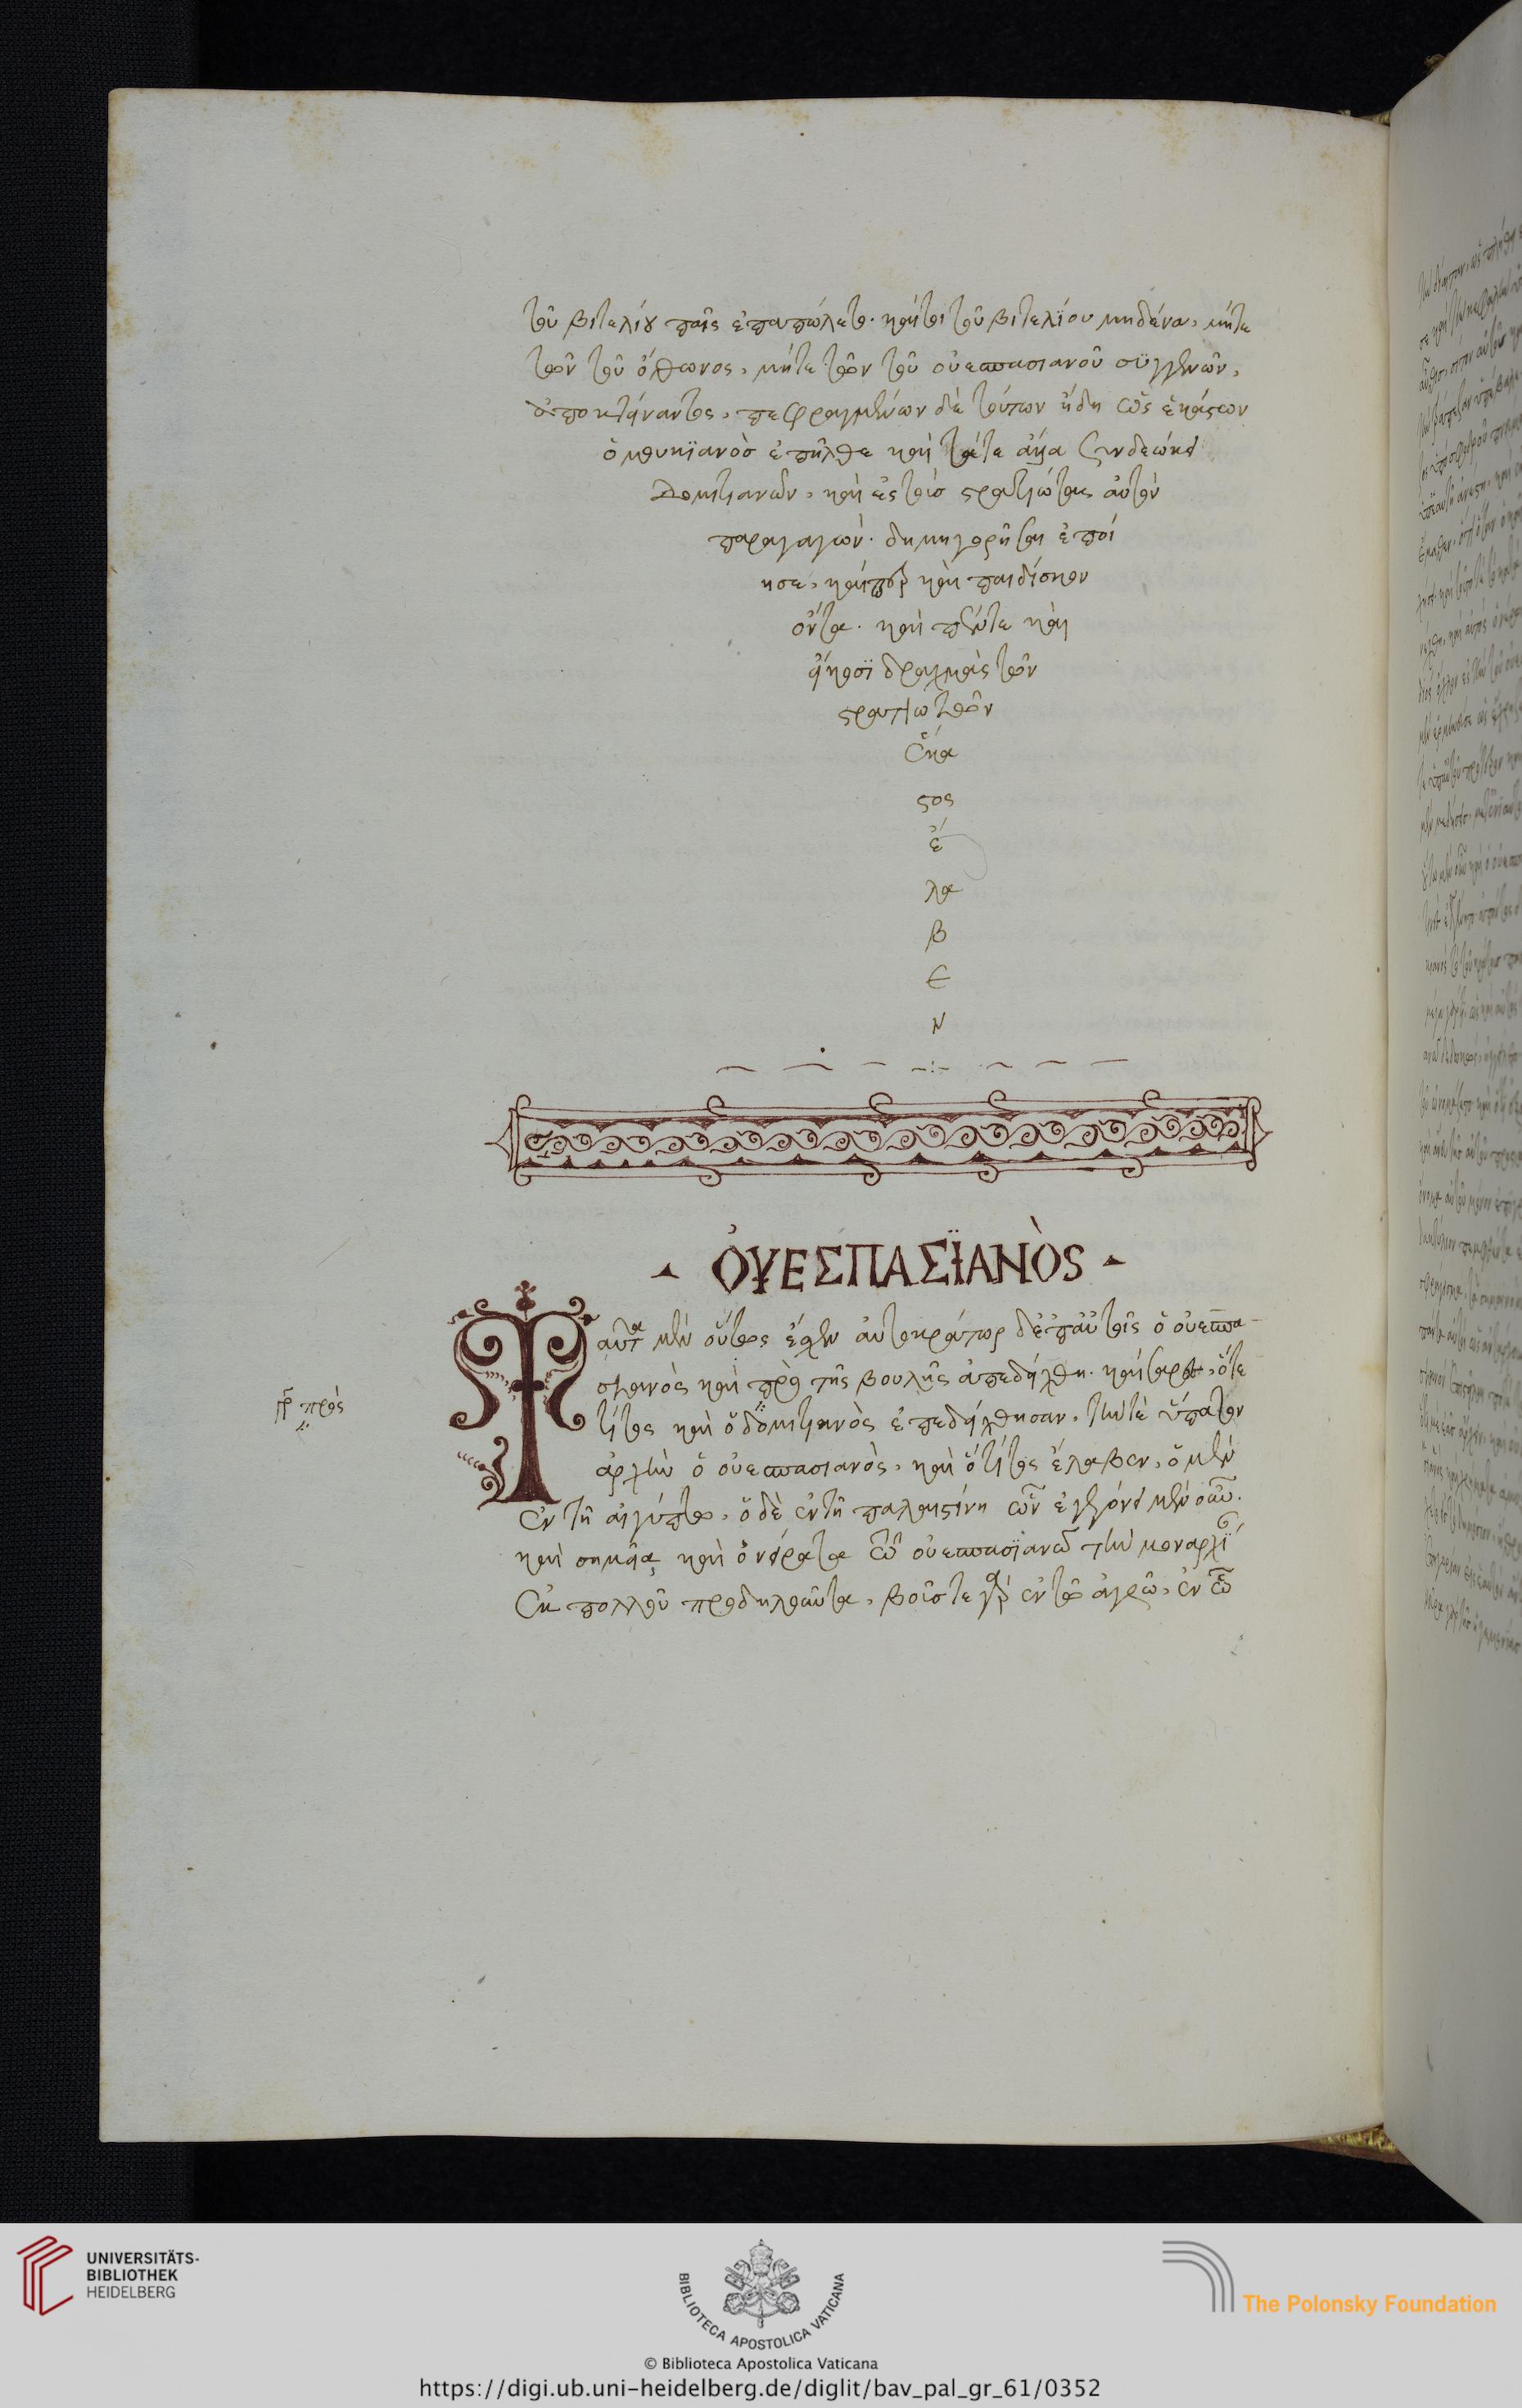 τοῦ βιτελίου παῖς ἐπαπώλετο. καίτοι τοῦ βιτελΐου μηδένα, μήτε
τῶν τοῦ ὄθωνος, μήτε τῶν τοῦ οὐεσπασιανοῦ συγγενῶν,
ἀποκτείναντος, πεπραγμένων δὲ τούτων ἤδη ὡς ἑκάστων
ὁ μουκϊανὸσ ἐπῆλθε καὶ τά τε ἄλλα
δομιτιανῶι, καὶ ἐς τοὺσ στρατιώτας αὐτὸν
παραγαγών. δημηγορῆσαι ἐποί
ησε, καίπερ καὶ παιδίσκον
ὄντα. καὶ πέντε καὶ
εἴκοσϊ δραχμὰς τῶν
στρατιωτῶν
ἕκα
στος
ἔ
λα
β
ε
ν
ὈΥΕΣΠΑΣΪΑΝῸΣ
Ταῦτα μὲν οὕτως ἔσχεν αὐτοκράτωρ δὲ ἐπ' αὐτοῖς ὁ οὐεσπα-
σιανὸς καὶ πρὸ τῆς βουλῆς ἀπεδείχθη. καὶ καίσαρες, ὅ τε
τίτος καὶ ὁ δομιτιανὸς ἐπεδείχθησαν. τήν τε ὕπατον
ἀρχὴν ὁ οὐεσπασιανὸς, καὶ ὁ τίτος ἔλαβεν, ὁ μὲν
ἐν τῆ αἰγύπτω, ὁ δὲ ἐν τῆ παλαιστίνη ὢν ἐγεγόνει μὲν οὖν.
καὶ σημεῖα καὶ ὀνείρατα τῶ οὐεσπασϊανῶ τὴν μοναρχΐαν
ἐκ πολλοῦ προδηλοῦντα, βοῦς τε γὰρ ἐν τῶ ἀγρῶ, ἐν ὧ
γρ πρὸς
UNIVERSITÄTS-
BIBLIOTHEK
HEIDELBERG
BIBLIOTECA APOSTOLICA VATICANA
The Polonsky Foundation
© Biblioteca Apostolica Vaticana
https://digi.ub.uni-heidelberg.de/diglit/bav_pal_gr_61/0352